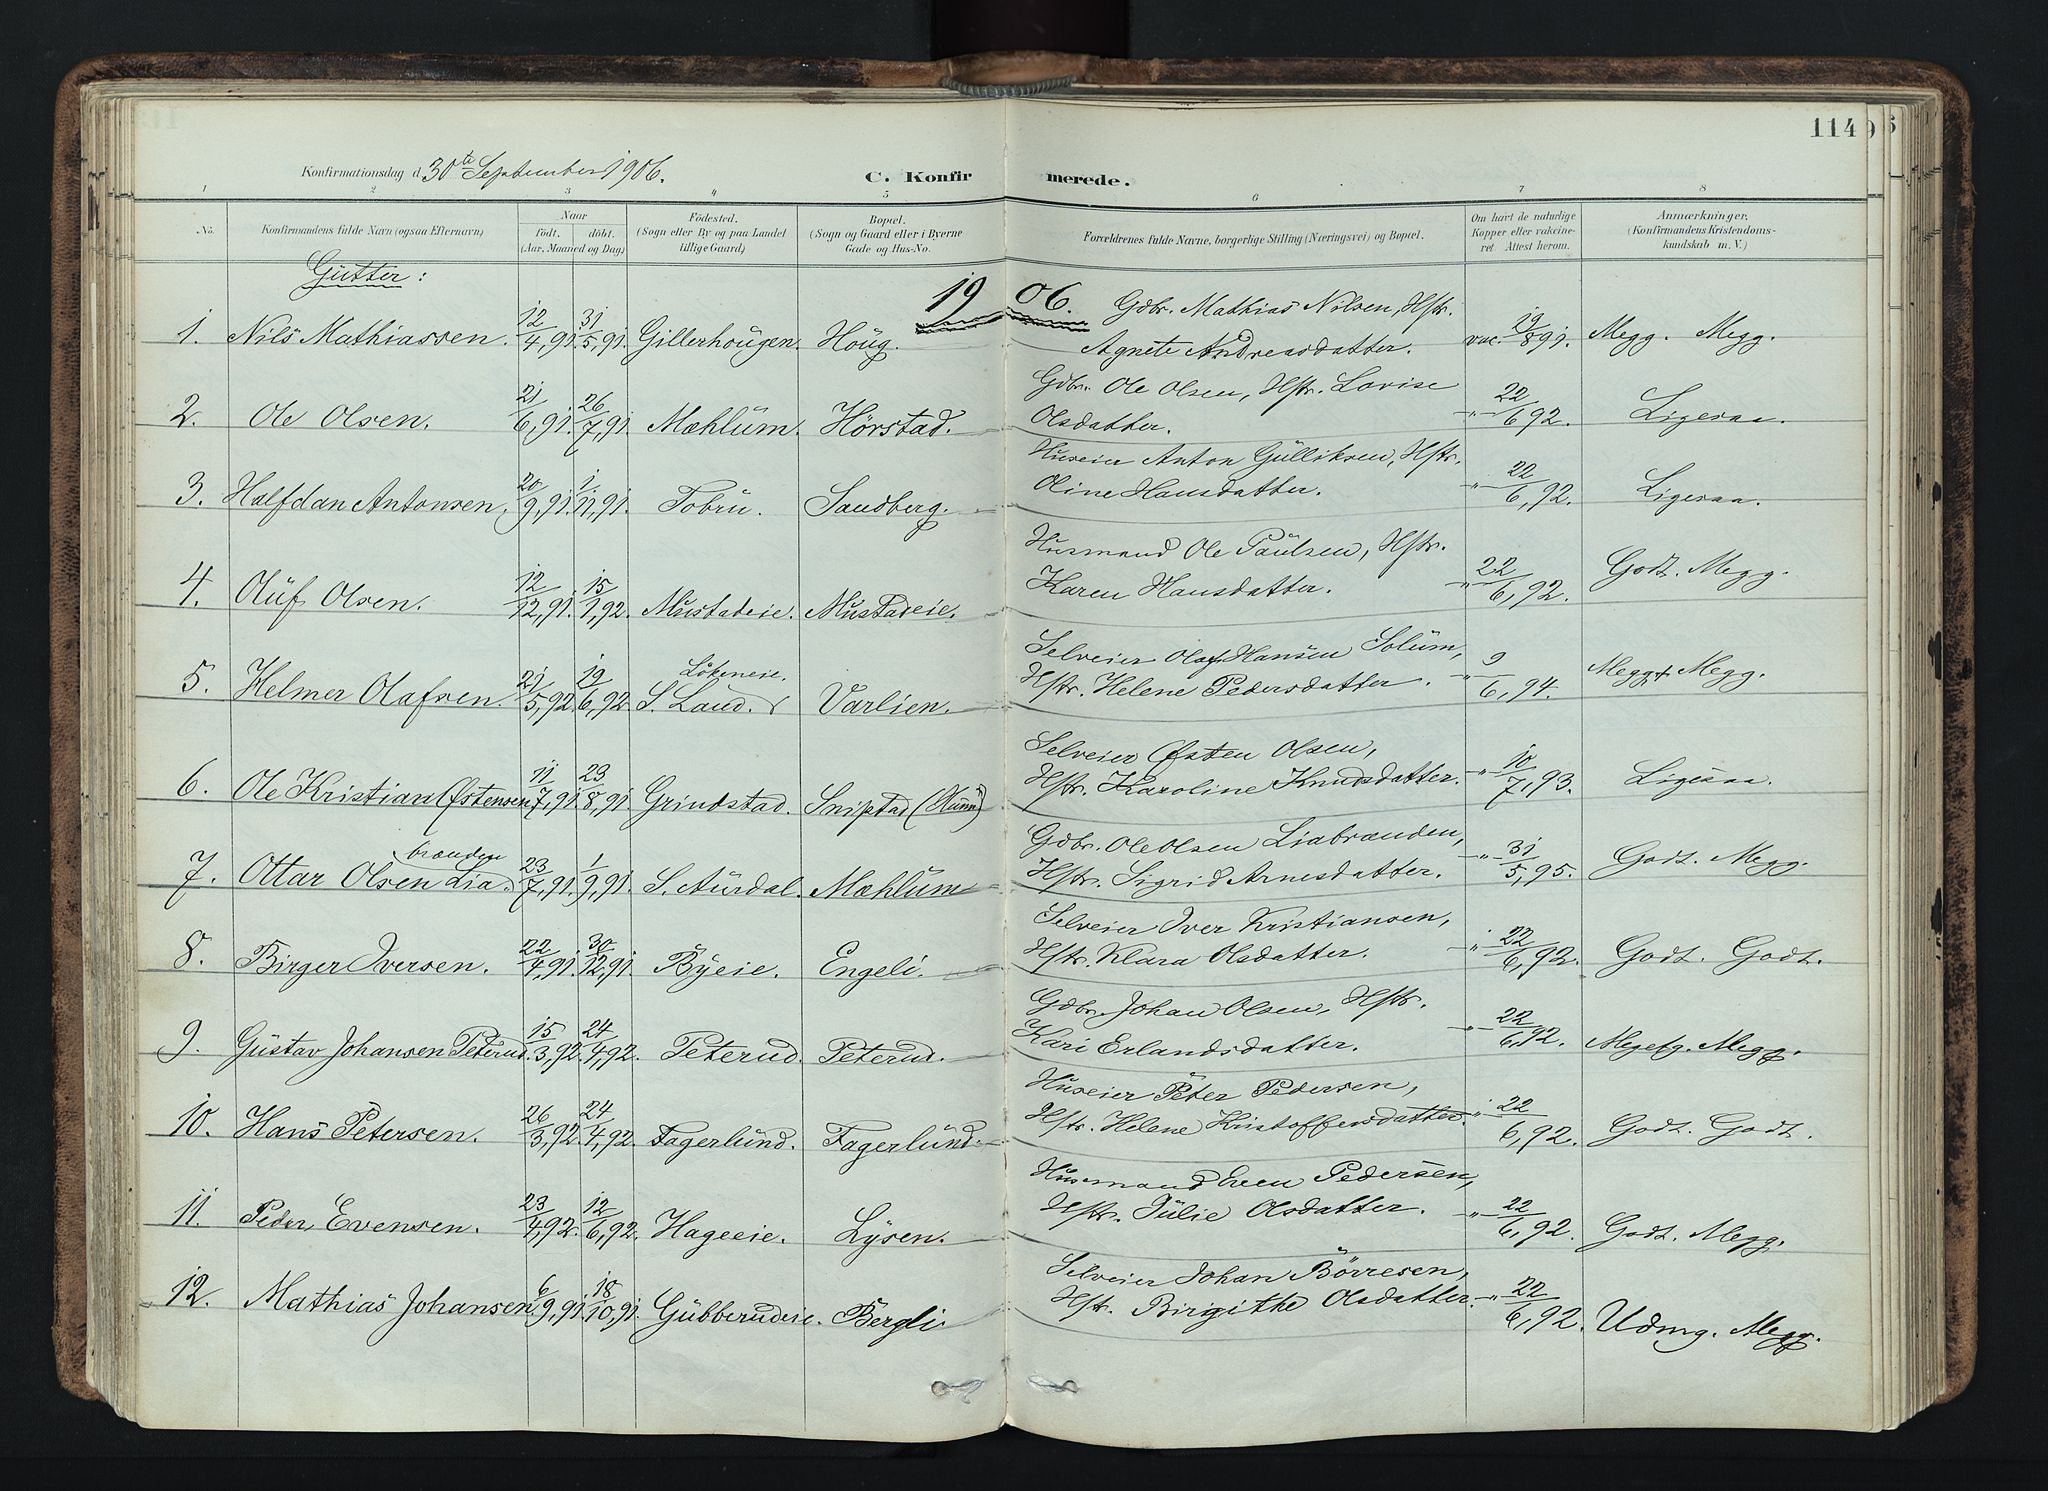 114
Konfirmationsdag d. 30te September 1906.
C. Konfirmerede.
1 2 3 4 5 6 7 8
No. Konfirmandens fulde Navn (ogsaa Efternavn) Naar født. døbt. (Aar, Maaned og Dag) Fødested. (Sogn eller By og paa Landet tillige Gaard) Bopæl. (Sogn og Gaard eller i Byerne Gade og Hus-No. Forældrenes fulde Navne, borgerlige Stilling (Næringsvei) og Bopæl. Om havt de naturlige Kopper eller vaccineret. Attest herom. Anmærkninger. (Konfirmandens Kristendomskundskab m. V.)
Gutter:
1906.
1. Nils Mathiassen. 12/4,91. 31/5,91. Gillerhougen. Houg. Gdbr. Mathias Nilsen, Hstr. Agnete Andreasdatter. vac. 19/8 91. Megg. Megg.
2. Ole Olsen. 21/6,91. 26/7,91. Mæhlum. Hørstad. Gdbr. Ole Olsen, Hstr. Lovise Olsdatter. -"- 22/6 92. Ligesaa.
3. Halfdan Antonsen. 20/9,91. 1/11,91. Tobru. Sandberg. Huseier Anton Gulliksen, Hstr. Oline Hansdatter. -"- 22/6,92. Ligesaa.
4. Oluf Olsen. 12/12,91. 15/1,92. Mustadeie. Mustadeie. Husmand Ole Paulsen, Hstr. Karen Hansdatter. -"- 22/6,92. Godt. Megg.
5. Helmer Olafsen. 21/5,92. 19/6,92. S. Land. Løkeneie. Varlien. Selveier Olaf Hansen Solum, Hstr. Helene Pedersdatter. -"- 9/6,94. Megg. Megg.
6. Ole Kristian Østensen 11/7,91. 23/8,91. Grindstad. Snipstad (Hunn) Selveier Østen Olsen, Hstr. Karoline Knudsdatter. -"- 10/7,93. Ligesaa.
7. Ottar Olsen Liabrænden. 23/7,91. 1/9,91. S. Aurdal. Mæhlum Gdbr. Ole Olsen Liabrænden, Hstr. Sigrid Arnesdatter. -"- 31/5,95. Godt. Megg.
8. Birger Iversen. 22/4,91. 30/12,91. Byeie. Engeli. Selveier Iver Kristiansen, Hstr. Klara Olsdatter. -"- 22/6,92. Godt. Godt.
9. Gustav Johansen Peterud. 15/3,92. 24/4,92. Peterud. Peterud. Gdbr. Johan Olsen, Hstr. Kari Erlandsdatter. -"- 22/6,92. Megetg. Megg.
10. Hans Petersen. 26/3,92. 24/4,92. Fagerlund. Fagerlund. Huseier Peter Pedersen, Hstr. Helene Kristoffersdatter. -"- 22/6,92. Godt. Godt.
11. Peder Evensen. 23/4,92. 12/6,92. Hageeie. Lysen. Husmand Even Pedersen, Hstr. Julie Olsdatter. -"- 22/6,92. Godt. Megg.
12. Mathias Johansen. 6/9,91. 18/10,91. Gubberudeie. Bergli. Selveier Johan Børresen, Hstr. Birgithe Olsdatter. -"- 22/6,92. Udmg. Megg.